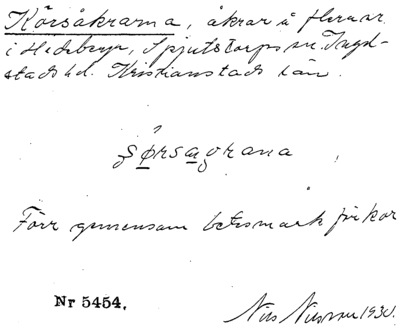 Körsåkrarna, åkrar å flera st.
i Hedeberga, Spjutstorps sn. Ingel-
stads hd. Kristianstads län.
Förr gemensam betesmark för kor
Nr 5454.
Nils Nilsson 1930.